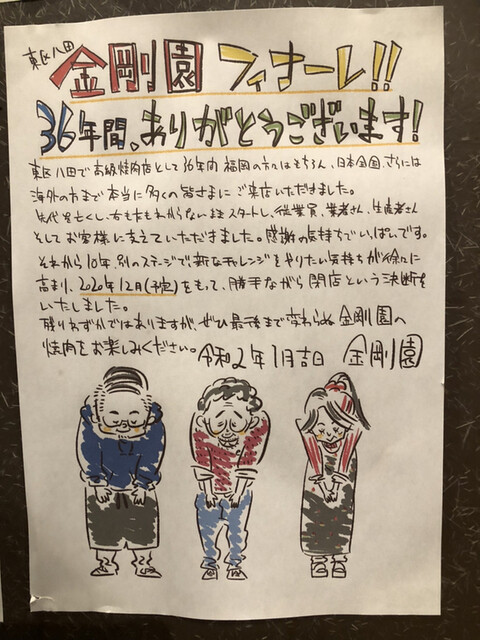 東区八田
金剛園 フィナーレ!!
36年間、ありがとうございます!
東区八田で高級焼肉店として36年間 福岡の方はもちろん、日本全国、さらには
海外の方まで本当に多くの皆さまにご来店いただきました。
先代を亡くし、右も左もわからないままスタートし、従業員、業者さん、生産者さん
そしてお客様に支えていただきました。感謝の気持ちでいっぱいです。
それから10年、別のステージで新たなチャレンジをやりたい気持ちが徐々に
高まり、2020年12月(予定)をもって、勝手ながら閉店という決断を
いたしました。
残りわずかではありますが、ぜひ最後まで変わらぬ金剛園へ
焼肉をお楽しみください。 令和2年1月吉日 金剛園